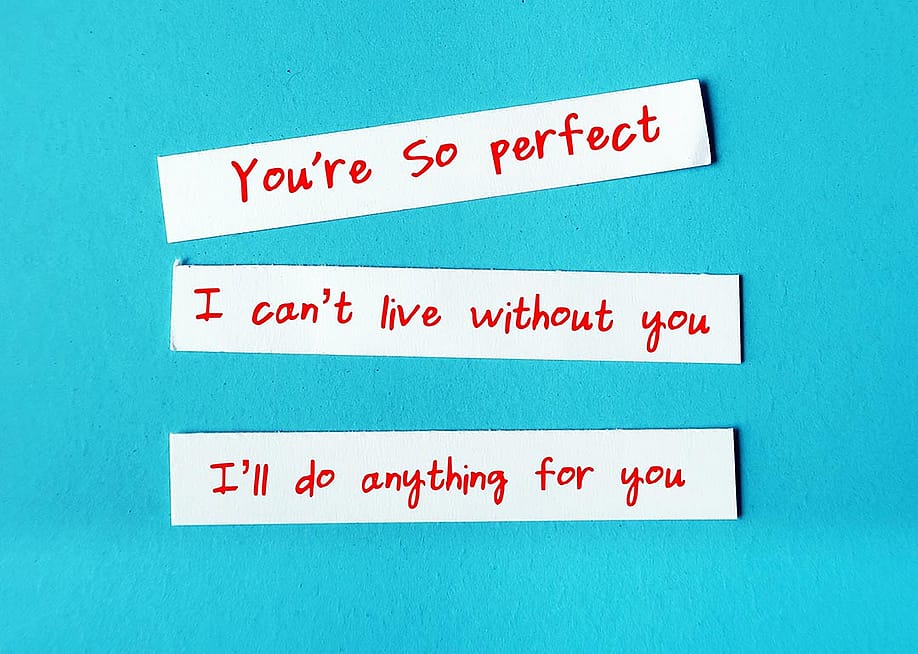 You're So perfect
I can't live without you
I'll do anything for you